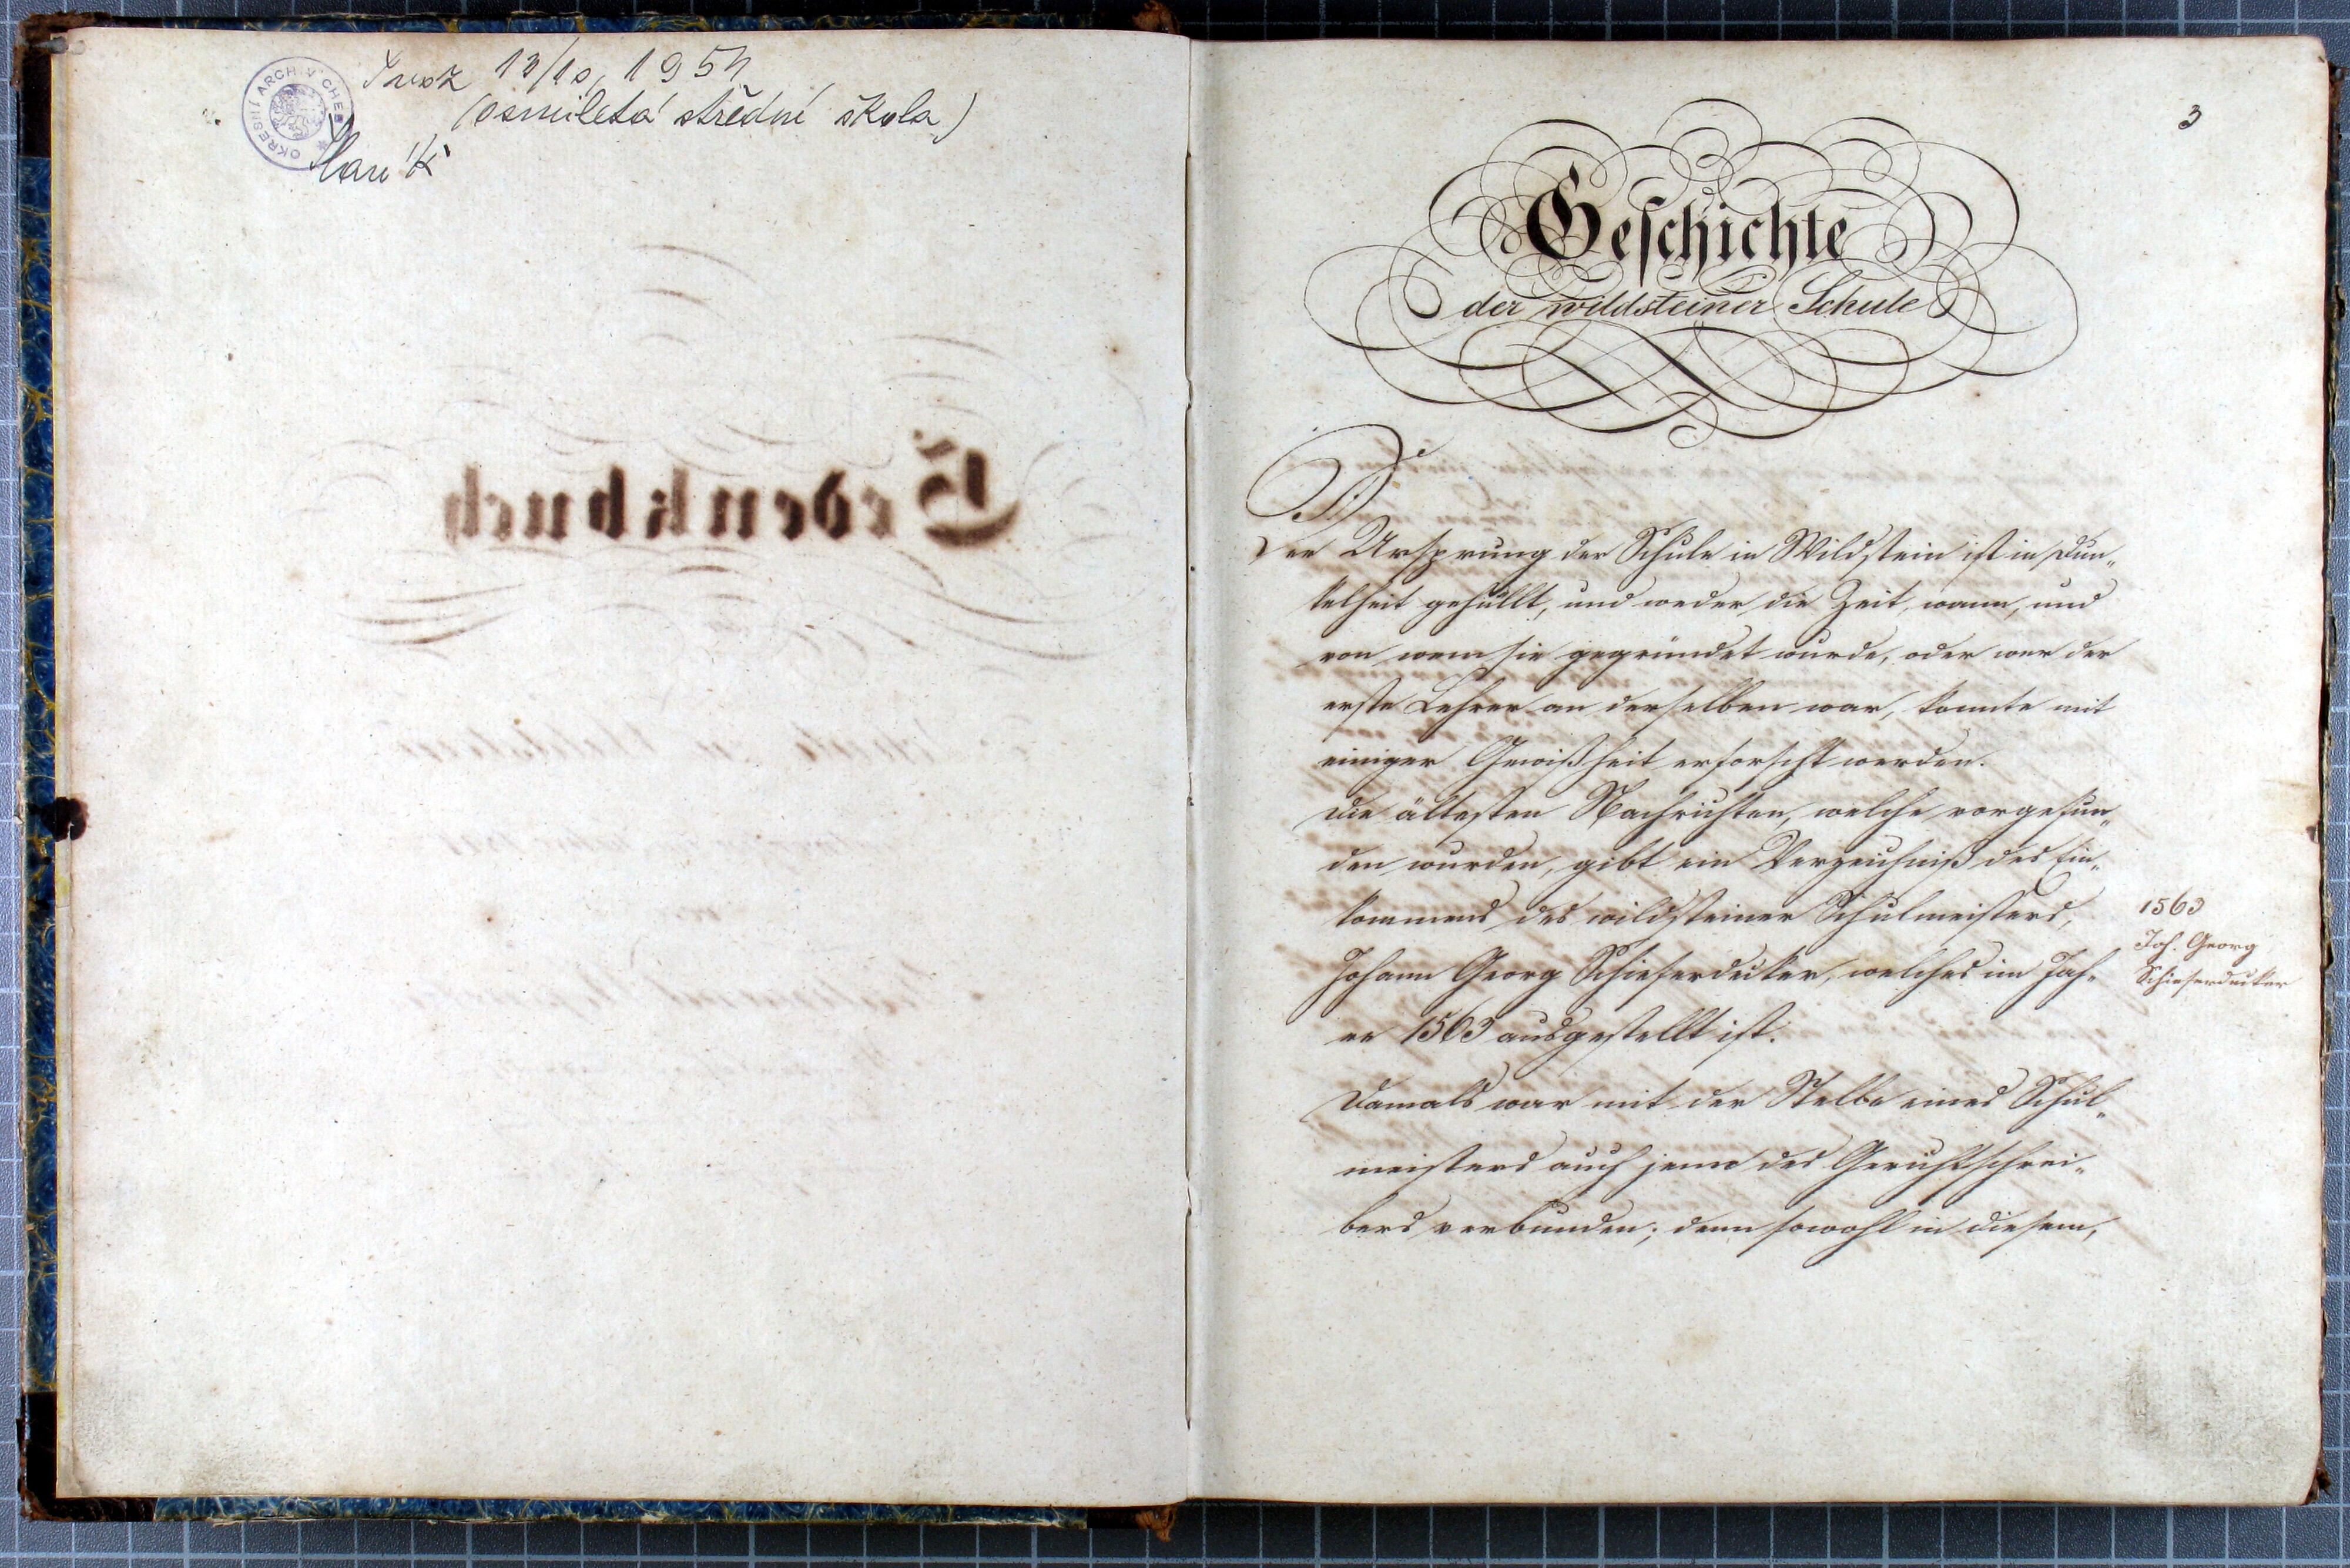 OKRESNÍ ARCHIV CHEB
Svoz 12/10, 1954
(osmiletá střední škola)
Gedenkbuch
3
Geschichte
der wildsteiner Schule
Der Ursprung der Schule in Wildstein ist in Dun„
kelheit gehüllt, und weder die Zeit, wann, und
von wem sie gegründet wurde, oder wer der
erste Lehrer an derselben war, konnte mit
einiger Gewißheit erforscht werden.
Die ältesten Nachrichten, welche vorgefun„
den wurden, gibt ein Verzeichniß des Ein„
kommens des wildsteiner Schulmeisters,
Johann Georg Schieferdecker, welches im Jah„
re 1563 ausgestellt ist.
Damals war mit der Stelle eines Schul„
meisters auch jene des Gerichtschrei„
bers verbunden; denn sowohl in diesem,
1563
Joh. Georg
Schieferdecker